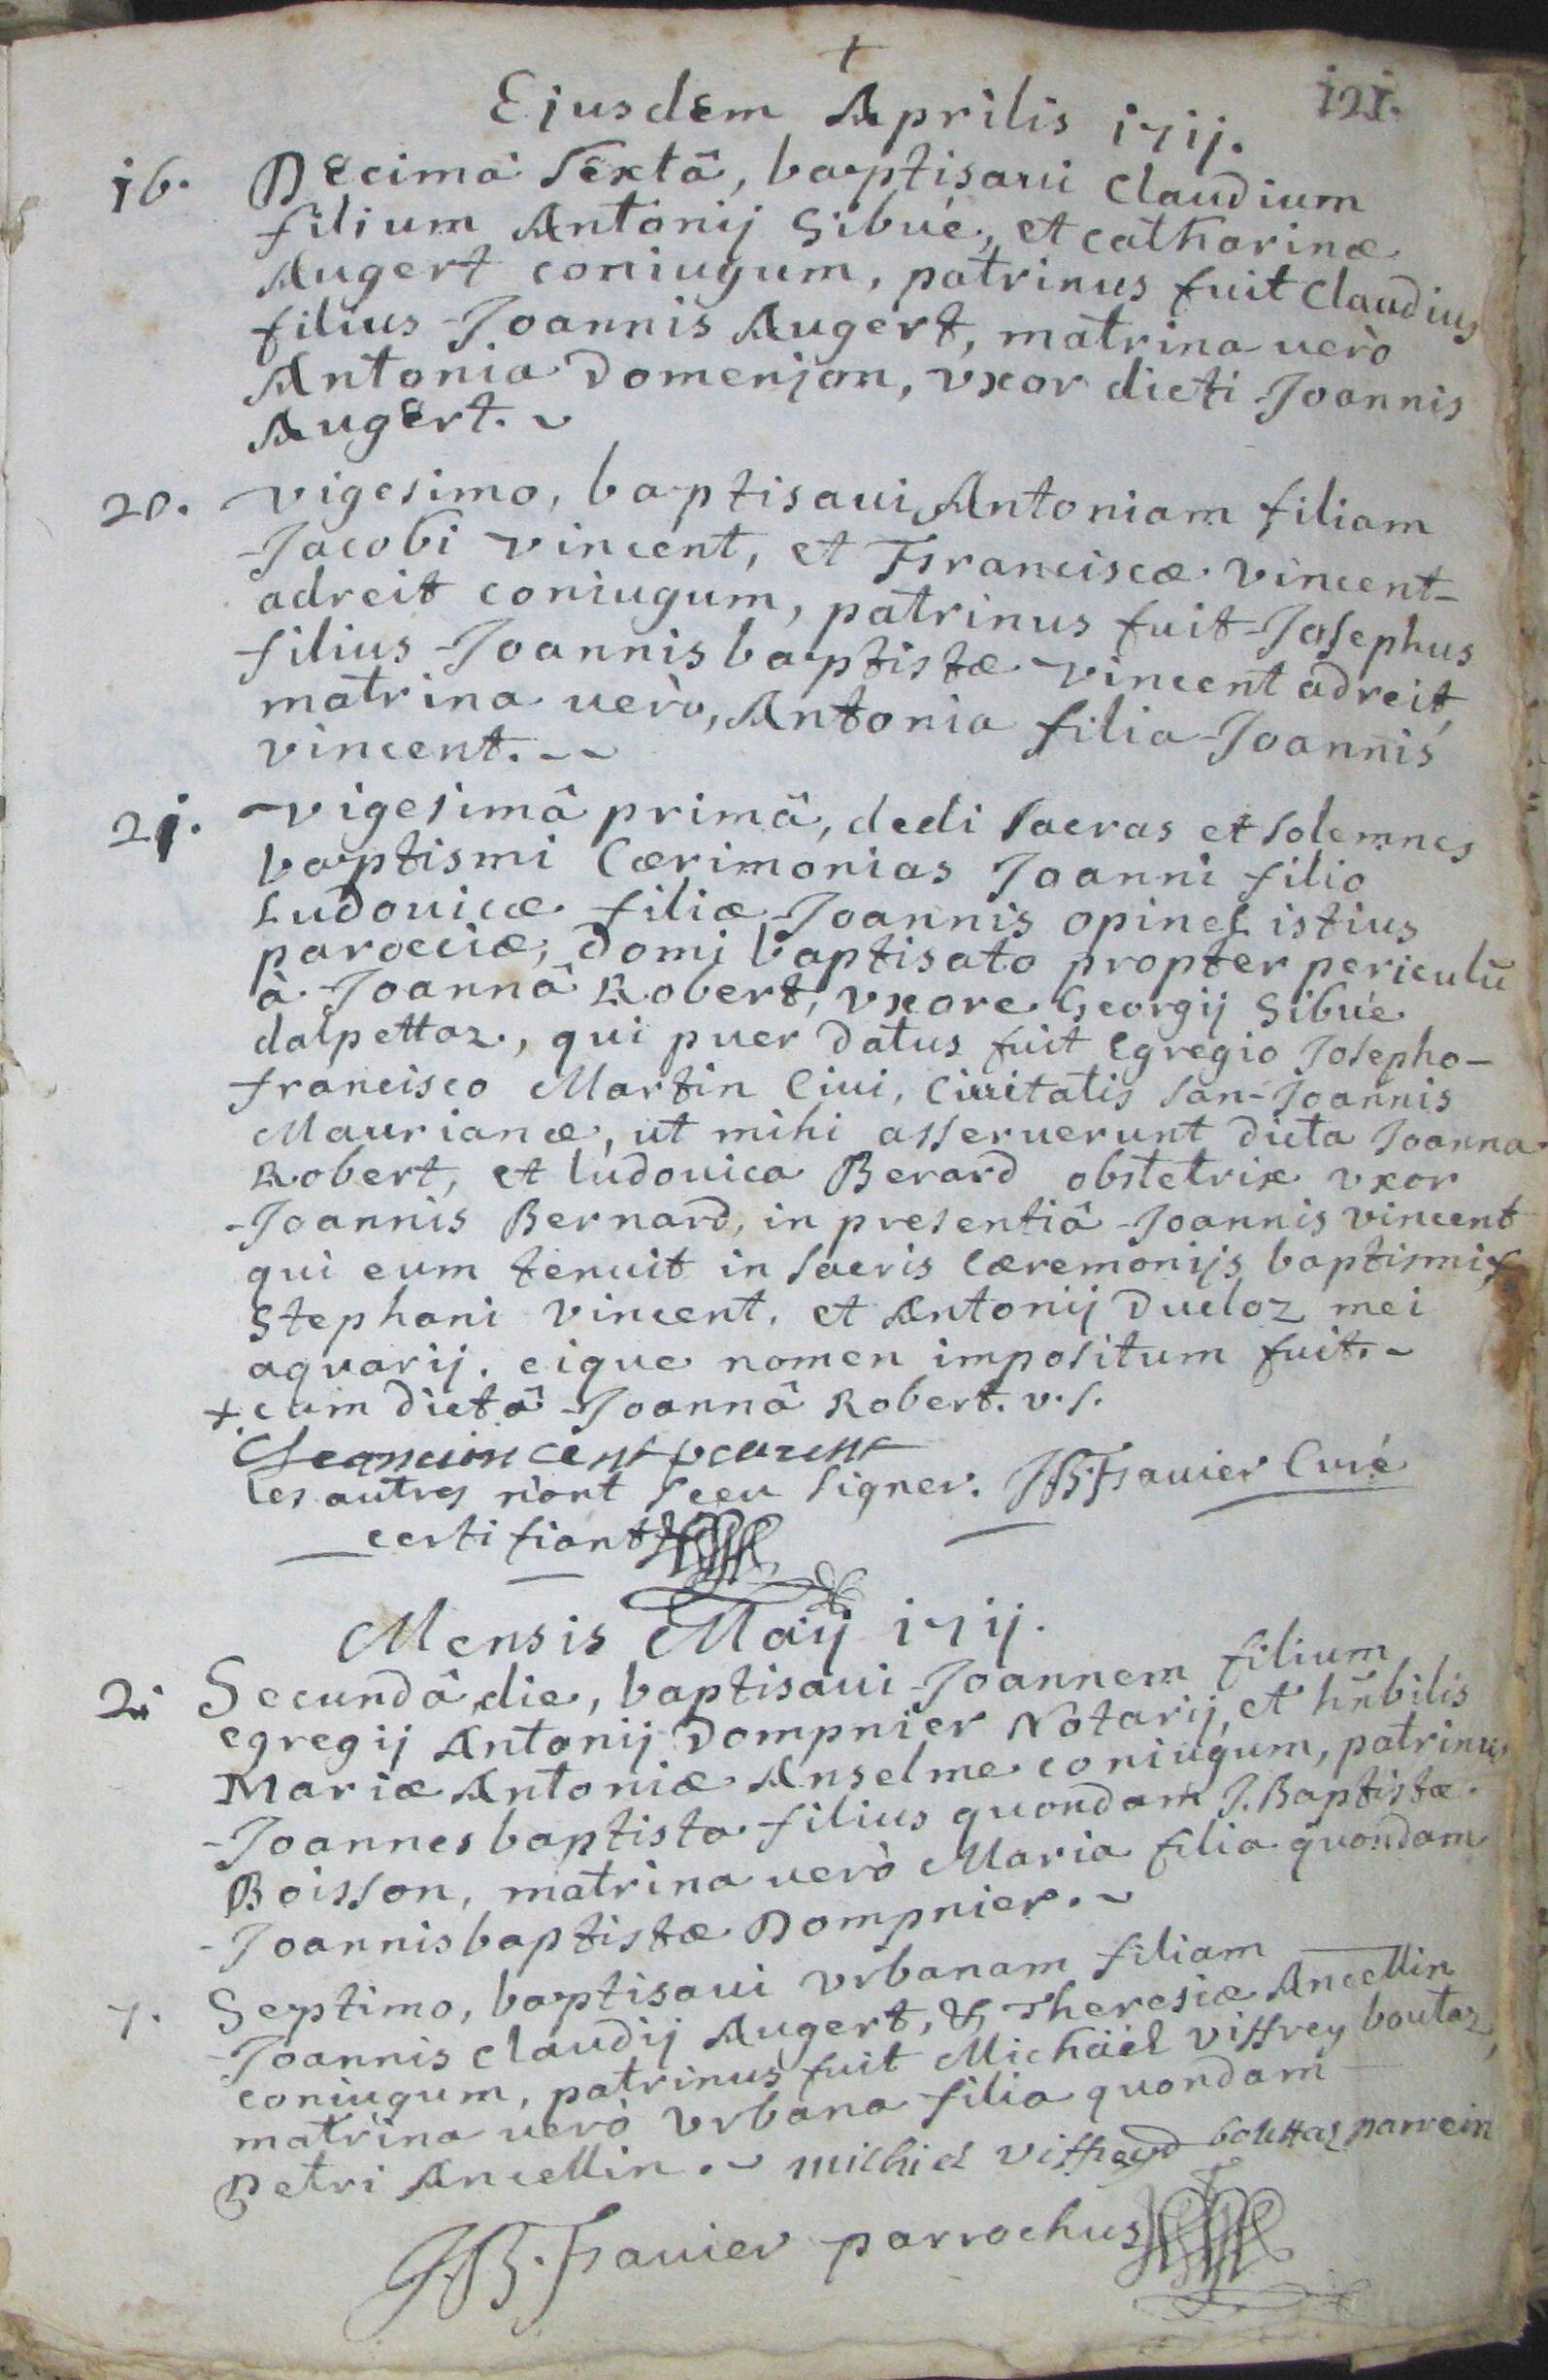 +
Ejusdem Aprilis 1711. 121.
16. Decimâ Sextâ, baptisaui Claudium
filium Antonij Sibué, et catharinæ
Augert coniugum, patrinus fuit Claudius
filius Joannis Augert, matrina uerò
Antonia Domenjon, vxor dicti Joannis
Augert.
20. vigesimo, baptisaui Antoniam filiam
Jacobi vincent, et Franciscæ vincent-
adreit coniugum, patrinus fuit Josephus
filius Joannis baptistæ vincent adreit,
matrina uerò, Antonia filia Joannis
vincent.--
21. vigesimâ primâ, dedi sacras et solemnes
baptismi Cærimonias Joanni filio
Ludouicæ filiæ Joannis opinel istius
parocciæ, Domi baptisato propter periculū
à Joannâ Robert, vxore Georgij Sibué
dalpettaz, qui puer Datus fuit Egregio Josepho-
francisco Martin Ciui, Ciuitatis San-Joannis
Maurianæ, ut mihi asseruerunt Dicta Joanna
Robert, et ludouica Berard obstetrix vxor
Joannis Bernard, in presentiâ Joannis vincent
qui eum tenuit in sacris Cæremonijs baptismi +
Stephani vincent, et Antonij Ducloz mei
aquarij, eique nomen impositum fuit.-
+ cum Dictâ Joannâ Robert. v.s.
les autres n'ont sceu signer. JB Frauier Curé
certifiant
Mensis Maij 1711.
2. Secundâ die, baptisaui Joannem filium
egregij Antonij Dompnier Notarij, et hn̄bilis
Mariæ Antoniæ Anselme coniugum, patrinus
Joannes baptista filius quondam J. Baptistæ
Boisson, matrina uerò Maria filia quondam
Joannis baptistæ Dompnier.
7. Septimo, baptisaui vrbanam filiam
Joannis Claudij Augert, & Theresiæ Ancellin
coniugum, patrinus fuit Michäel Viffrey boutaz,
matrina uerò Vrbana filia quondam
Petri Ancellin. michiel viffreyd bouttaz parrein
JB. Frauier parrochus